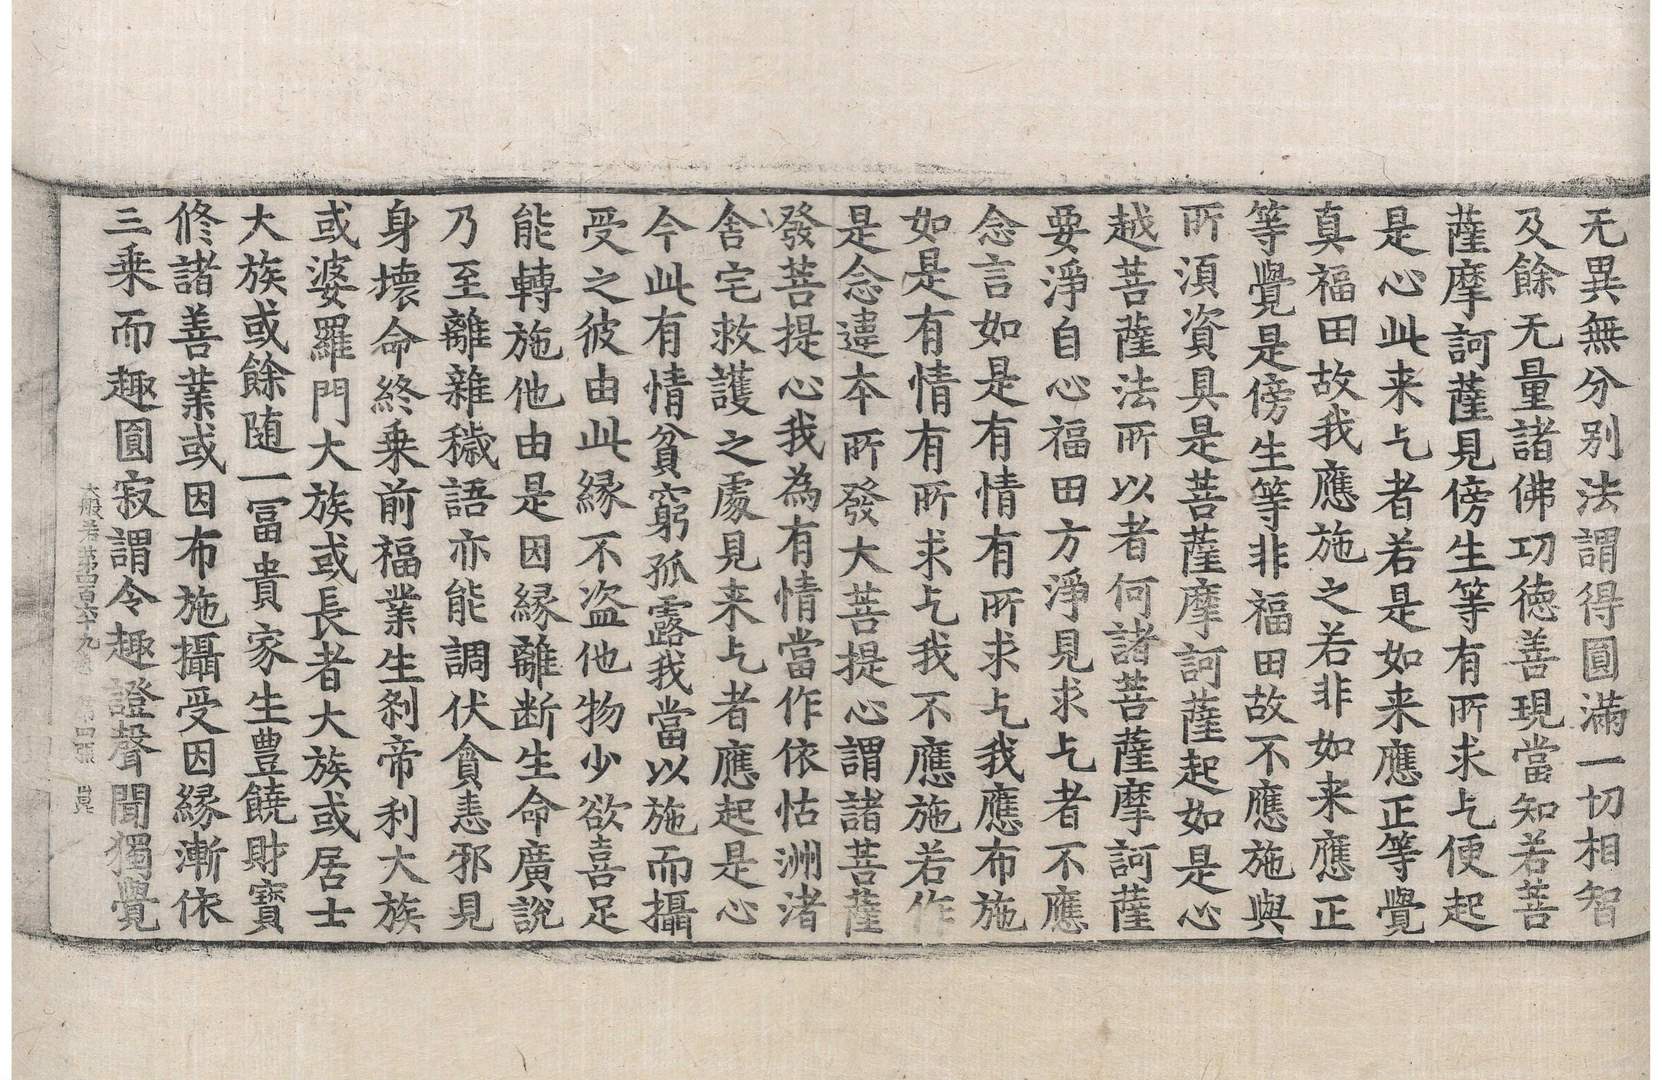 无異無分别法謂得圓滿一切相智
及餘无量諸佛功德善現當知若菩
薩摩訶薩見傍生等有所求乞便起
是心此来乞者若是如来應正等覺
真福田故我應施之若非如来應正
等覺是傍生等非福田故不應施與
所湏資具是菩薩摩訶薩起如是心
越菩薩法所以者何諸菩薩摩訶薩
要淨自心福田方淨見求乞者不應
念言如是有情有所求乞我應布施
如是有情有所求乞我不應施若作
是念違本所發大菩提心謂諸菩薩
發菩提心我為有情當作依怙洲渚
舍宅救護之處見来乞者應起是心
今此有情貧窮孤露我當以施而攝
受之彼由此縁不盗他物少欲喜足
能轉施他由是因縁離断生命廣說
乃至離雜穢語亦能調伏貪恚邪見
身壞命終乗前福業生刹帝利大族
或婆羅門大族或長者大族或居士
大族或餘随一冨貴家生豊饒財寶
修諸善業或因布施攝受因縁漸依
三乗而趣圓寂謂令趣證聲聞獨覺
大般若第四百六十九卷 第四張 崑